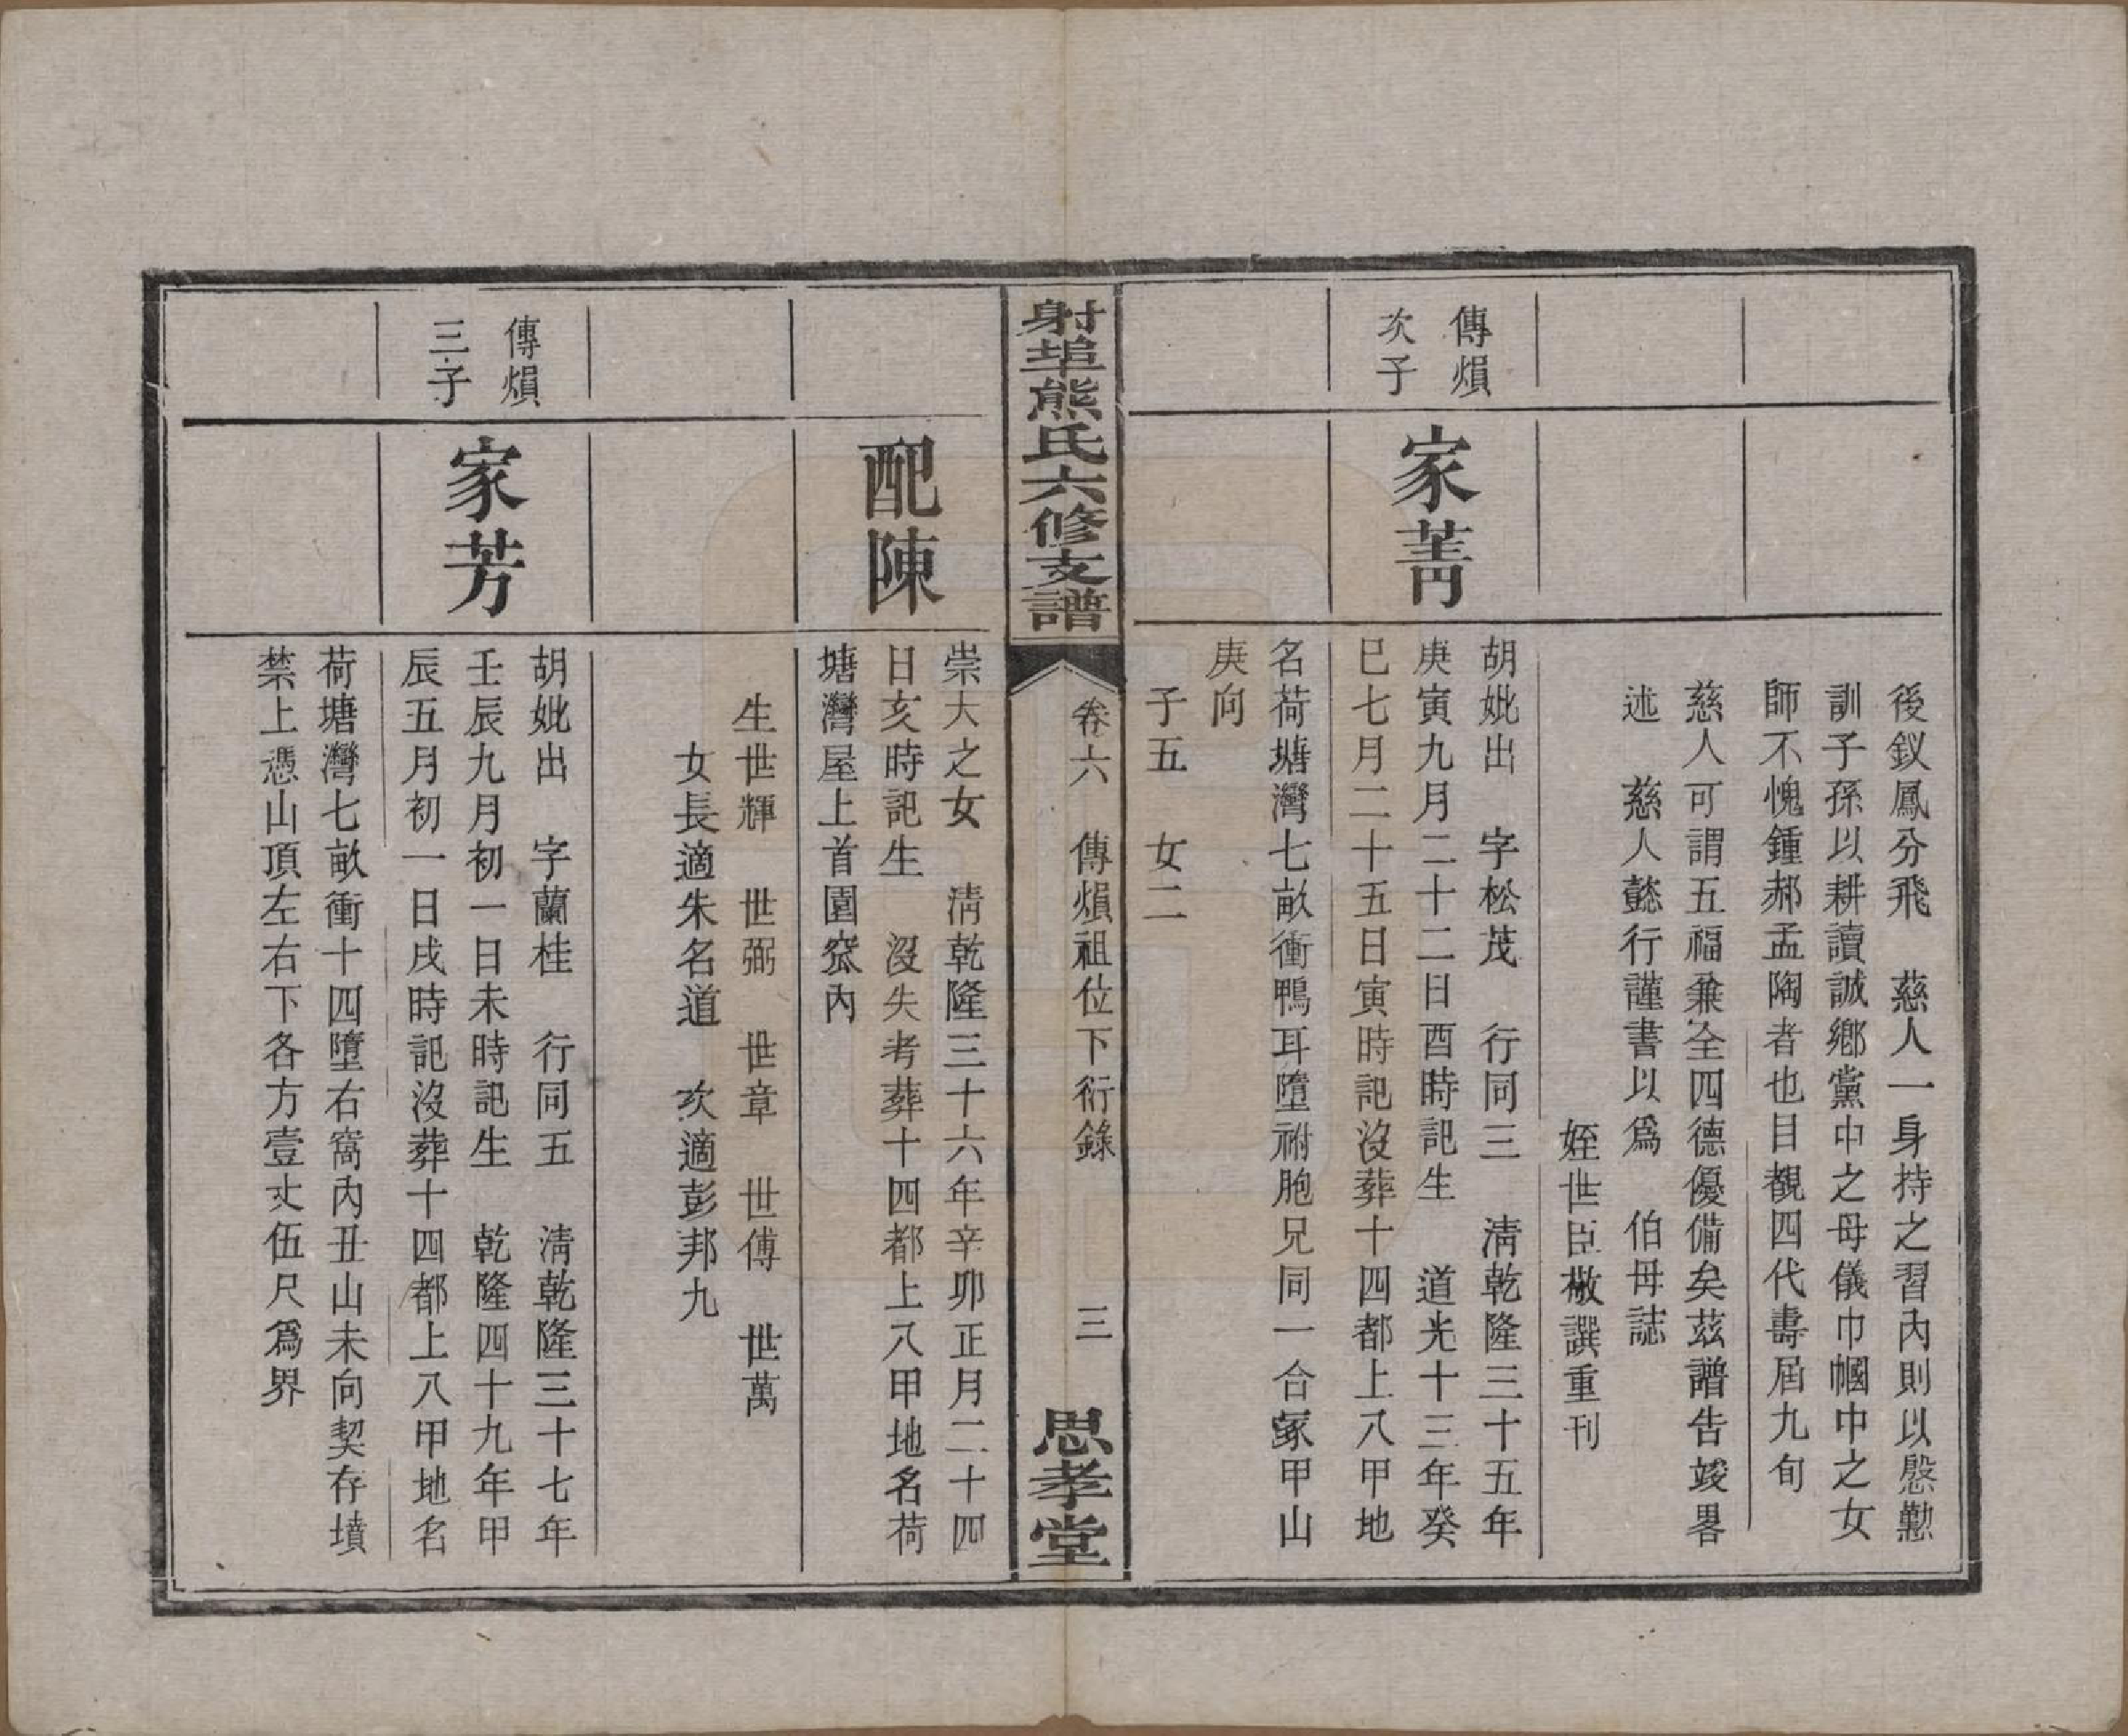 後釵鳳分飛　慈人一身持之習內則以慇懃
訓子孫以耕讀誠鄉黨中之母儀巾幗中之女
師不愧鍾郝孟陶者也目覩四代壽屆九旬
慈人可謂五福兼全四德優備矣茲譜告竣畧
述　慈人懿行謹書以爲　伯母誌
姪世臣檄譔重刊
傳熉
次子
家菁
胡妣出　字松茂　行同三　清乾隆三十五年
庚寅九月二十二日酉時記生　道光十三年癸
巳七月二十五日寅時記沒葬十四都上八甲地
名荷塘灣七畝衝鴨耳墮祔胞兄同一合冢甲山
庚向
子五　女二
射埠熊氏六修支譜
卷六　傳熉祖位下衍錄　三
思孝堂
配陳
崇大之女　清乾隆三十六年辛卯正月二十四
日亥時記生　沒失考葬十四都上八甲地名荷
塘灣屋上首園窊內
生世輝　世弼　世章　世傅　世萬
女長適朱名道　次適彭邦九
傳熉
三子
家芳
胡妣出　字蘭桂　行同五　清乾隆三十七年
壬辰九月初一日未時記生　乾隆四十九年甲
辰五月初一日戌時記沒葬十四都上八甲地名
荷塘灣七畝衝十四墮右窩內丑山未向契存墳
禁上憑山頂左右下各方壹丈伍尺爲界